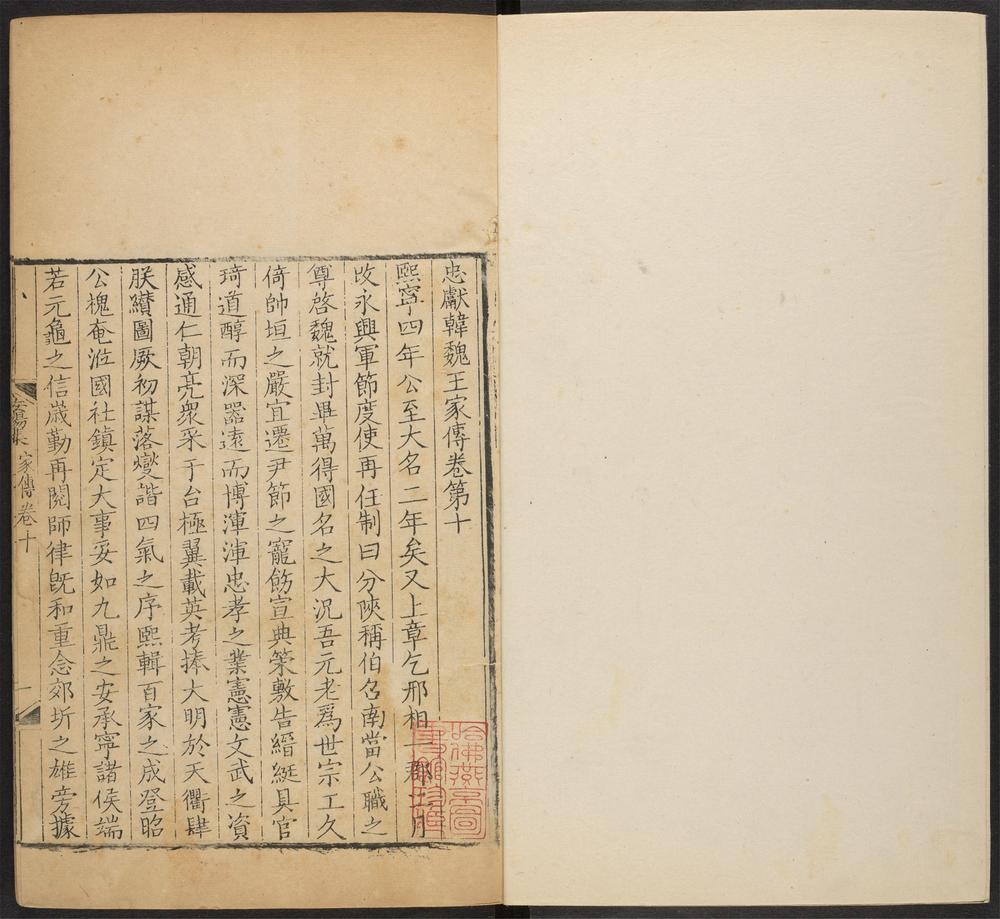 忠獻韓魏王家傳卷第十
熙寧四年公至大名二年矣又上章乞邢相一郡二月
改永興軍節度使再任制曰分陜稱伯召南當公職之
尊啓魏就封畢萬得國名之大况吾元老爲世宗工久
倚帥垣之嚴宜遷尹節之寵飭宣典策敷告縉綎具官
琦道醇而深器遠而博渾渾忠孝之業憲憲文武之資
感通仁朝亮衆采于台極翼載英考捧大明於天衢肆
朕纘圖厥初謀落燮諧四氣之序熙輯百家之成登昭
公槐奄涖國社鎮定大事妥如九鼎之安承寧諸侯端
若元龜之信歲勤再閱師律旣和重念郊圻之雄旁據
安陽集 家傳卷十
一
哈佛燕京圖書館珍藏